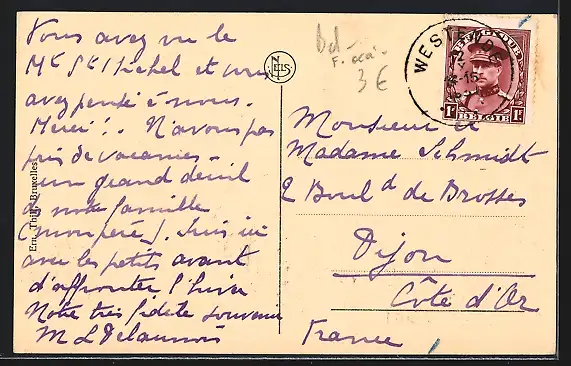 Vous avez vu le
Mt St Michel et vous
avez pensé à nous.
Merci ! - N'avons pas
pris de vacances -
un grand deuil
de notre famille
(mon père). Suis ici
avec les petits avant
d'affronter l'hiver
Notre très fidèle souvenir
M L Delaunois
Ern. Thill, Bruxelles
NELS
Bel
3 €
WESTENDE
BELGIQUE
1F 1F
BELGIE
Monsieur et
Madame Schmidt
2 Boul d de Brosses
Dijon
Côte d'Or
France